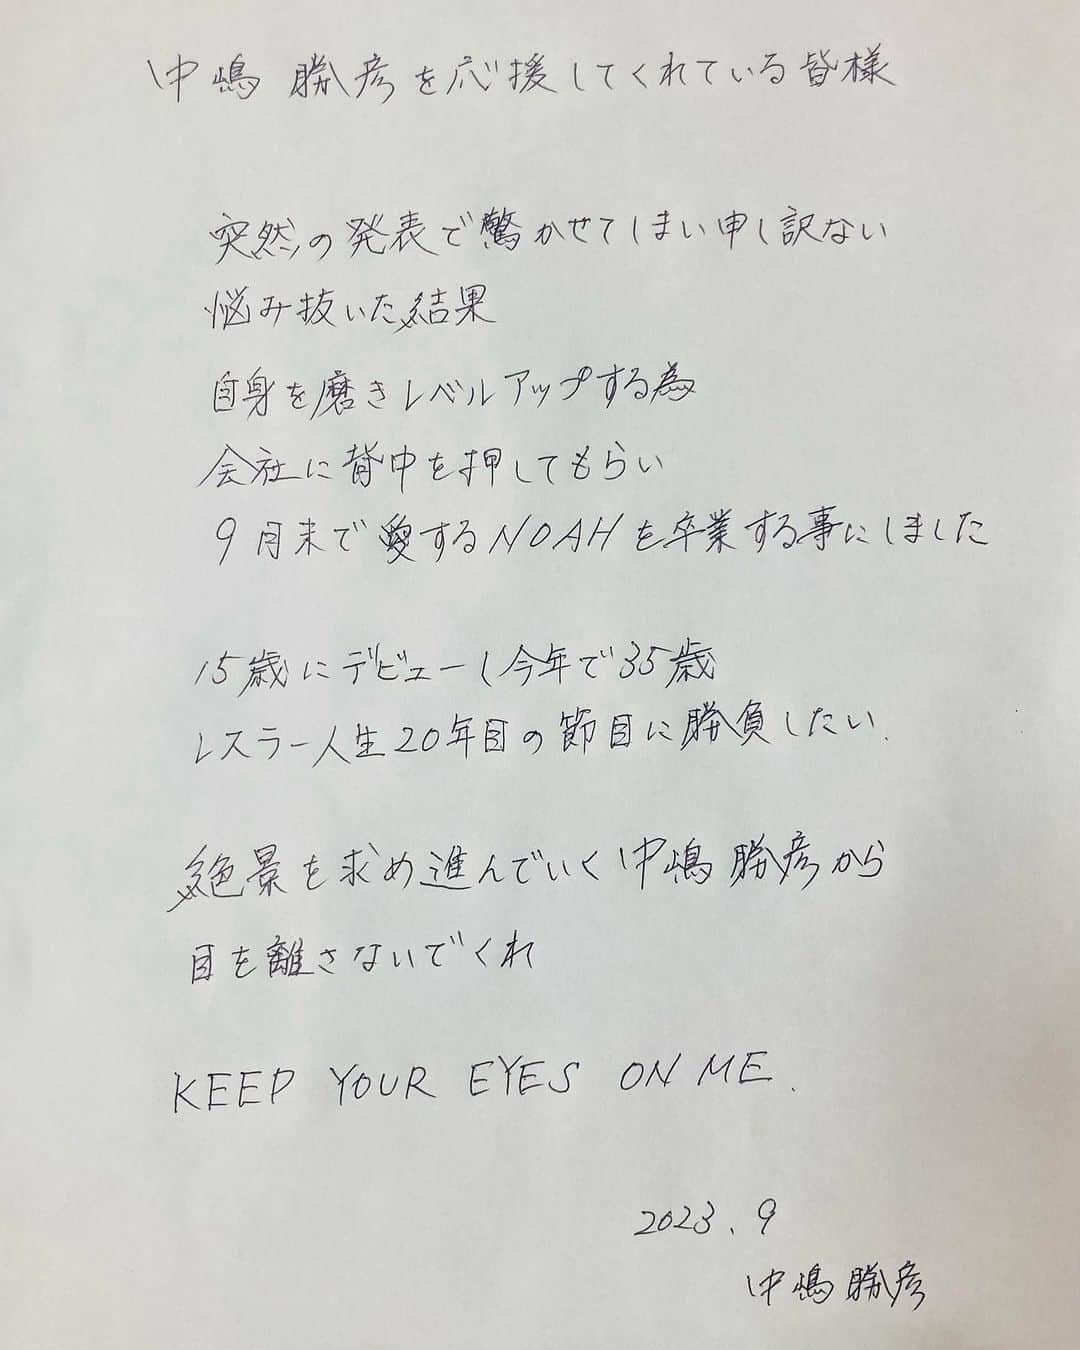 中嶋 勝彦を応援してくれている皆様
突然の発表で驚かせてしまい申し訳ない
悩み抜いた結果
自身を磨きレベルアップする為
会社に背中を押してもらい
9月末で愛するNOAHを卒業する事にしました
15歳にデビューし今年で35歳
レスラー人生20年目の節目に勝負したい.
絶景を求め進んでいく中嶋 勝彦から
目を離さないでくれ
KEEP YOUR EYES ON ME.
2023.9
中嶋 勝彦